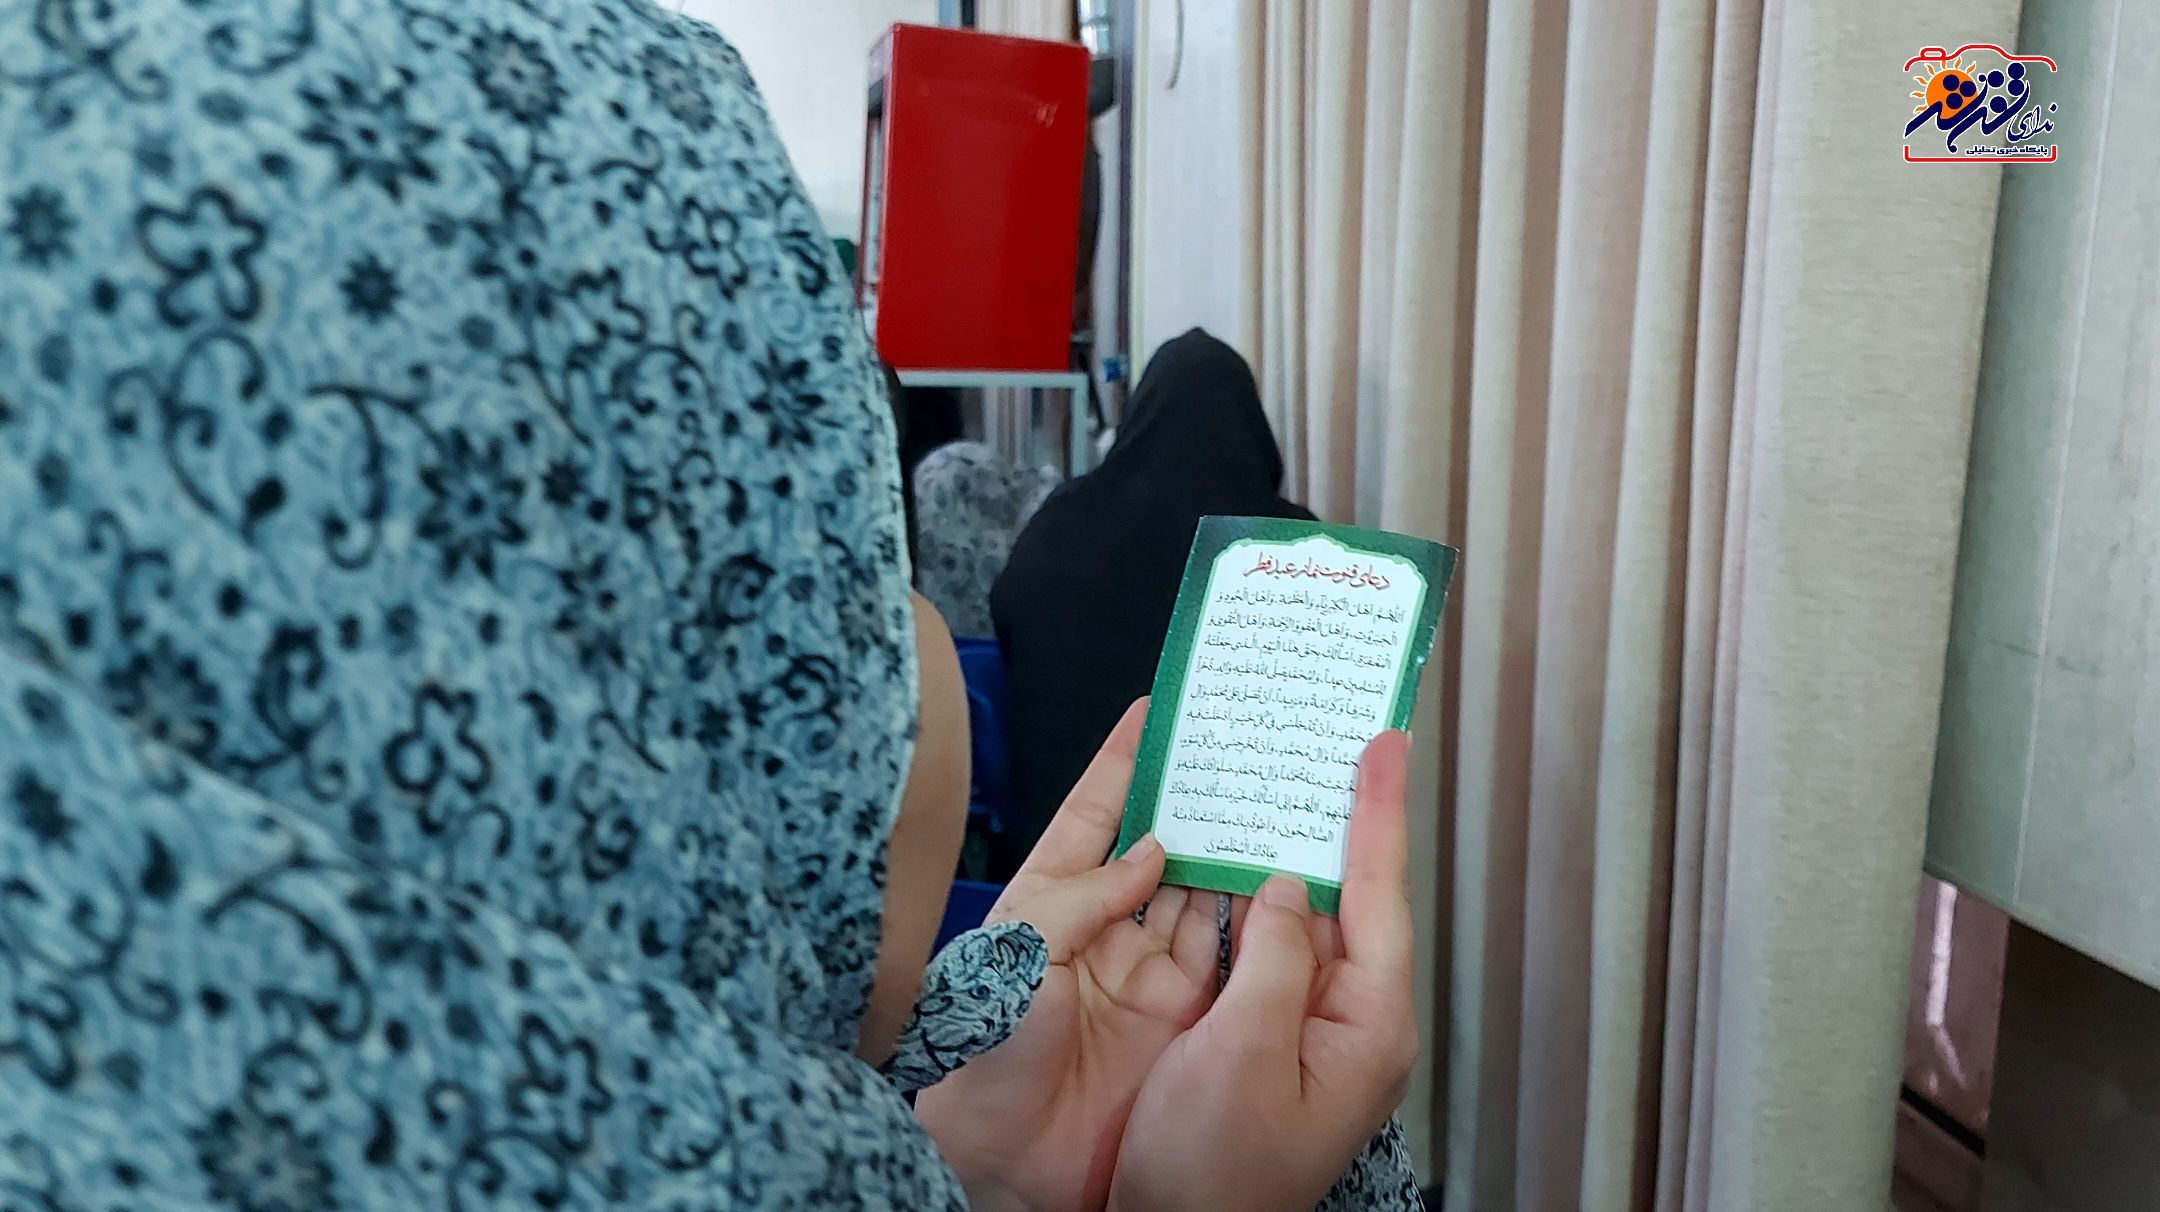 ندای قشم
پایگاه خبری تحلیلی
دعای قنوت نماز عید فطر
اَللّهُمَّ اَهْلَ الْكِبْرِيٰآءِ وَالْعَظَمَةِ، وَاَهْلَ الْجُودِ وَ
الْجَبَرُوتِ، وَاَهْلَ الْعَفْوِ وَالرَّحْمَةِ، وَاَهْلَ التَّقْوىٰ وَ
الْمَغْفِرَةِ، اَسْأَلُكَ بِحَقِّ هٰذَا الْيَوْمِ، اَلَّذي جَعَلْتَهُ
لِلْمُسْلِمينَ عيداً، وَلِمُحَمَّدٍ صَلَّى اللهُ عَلَيْهِ وَآلِهِ، ذُخْراً
وَشَرَفاً وَكَرٰامَةً وَمَزيداً، اَنْ تُصَلِّيَ عَلىٰ مُحَمَّدٍ وَآلِ
مُحَمَّدٍ، وَاَنْ تُدْخِلَني في كُلِّ خَيْرٍ اَدْخَلْتَ فيهِ
مُحَمَّداً وَآلَ مُحَمَّدٍ، وَاَنْ تُخْرِجَني مِنْ كُلِّ سُوٓءٍ،
اَخْرَجْتَ مِنْهُ مُحَمَّداً وَآلَ مُحَمَّدٍ، صَلَوٰاتُكَ عَلَيْهِ وَ
عَلَيْهِمْ، اَللّهُمَّ اِنّي اَسْأَلُكَ خَيْرَ مٰا سَأَلَكَ بِهِ عِبٰادُكَ
الصّٰالِحُونَ، وَاَعُوذُ بِكَ مِمَّا اسْتَعٰاذَ مِنْهُ
عِبٰادُكَ الْمُخْلَصُونَ.